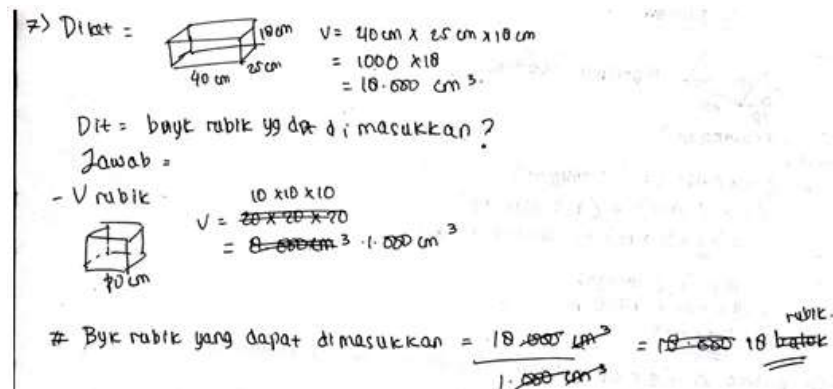 7) Diket =
18cm
25cm
40 cm
V = 40cm x 25cm x 18cm
= 1000 x 18
= 18.000 cm³.
Dit = bnyk rubik yg dpt dimasukkan?
Jawab =
- V rubik
10 x 10 x 10
V = 20 x 20 x 20
= 8.000cm³ . 1.000 cm³
10cm
# Byk rubik yang dapat dimasukkan = 18.000 cm³ / 1.000 cm³ = 18.000 18 balok rubik.